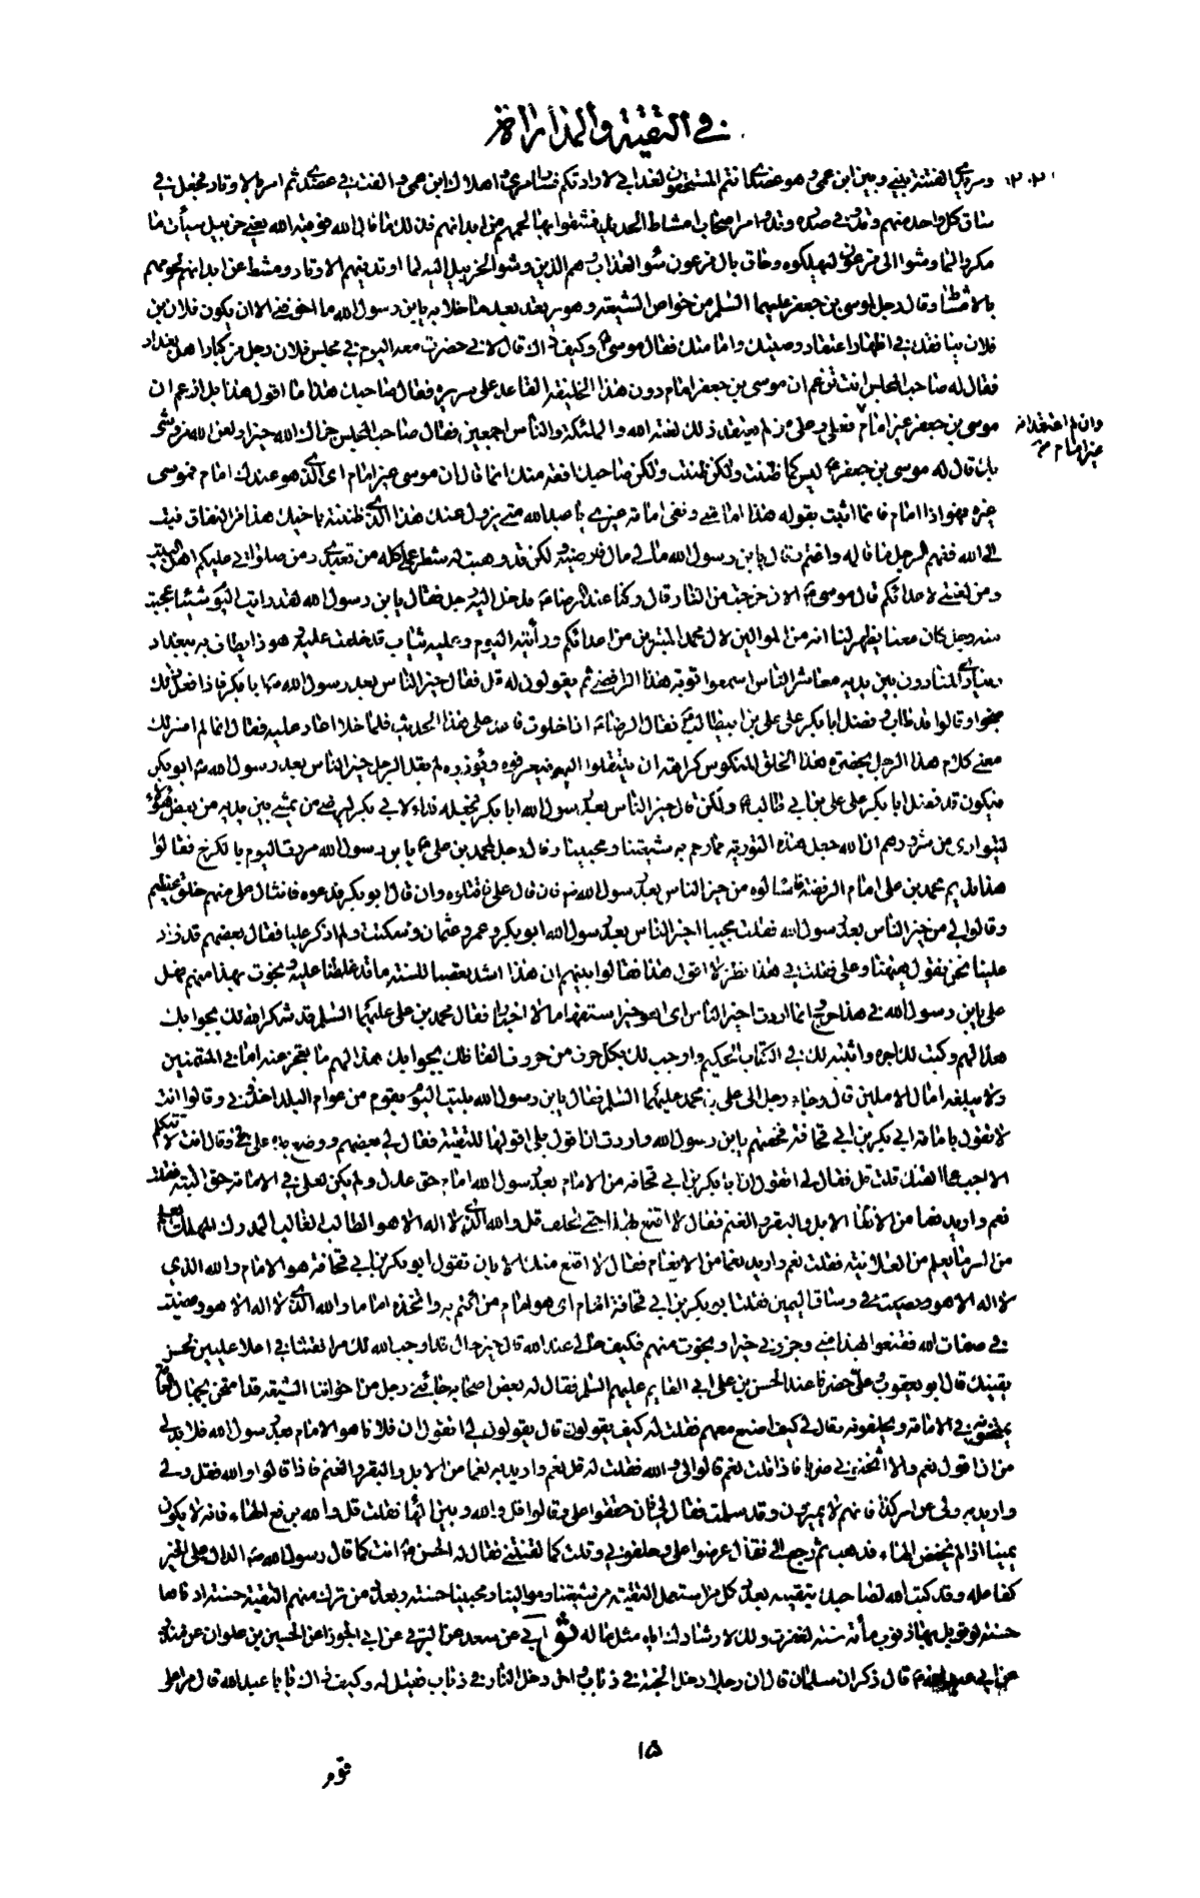 في التقية والمداراة
٢٠٢
بيني وبين ابن عمي وهو عضدي كنتم المستحقون لعذابي لارادتكم فساد امري واهلاك ابن عمي والفت في عضدي ثم امر بالاوتاد فجعل في
ساق كل واحد منهم وتد وفي صدره وتد وامر اصحاب امشاط الحديد فشقوا بها لحمهم من ابدانهم فذلك ما قال الله فوقيه الله يعني حزبيل سيئات ما
مكروا لما وشوا الى فرعون ليهلكوه وحاق بال فرعون سوء العذاب وهم الذين وشوا لحزبيل اليه لما اوتد فيهم الاوتاد ومشط عن ابدانهم لحومهم
بالامشاط وقال رجل لموسى بن جعفر عليهما السلم من خواص الشيعة وهو يرتعد بعد ما خلا به يابن رسول الله ما اخوفني الا ان يكون فلان بن
فلان ينافقك في اظهار اعتقاد وصيتك وامامتك فقال موسى وكيف ذاك قال لاني حضرت معه اليوم في مجلس فلان رجل من كبار اهل بغداد
فقال له صاحب المجلس انت تزعم ان موسى بن جعفر امام دون هذا الخليفة القاعد على سريره فقال صاحبك هذا ما اقول هذا بل ازعم ان
موسى بن جعفر غير امام فعلي وعلى من لم يعتقد ذلك لعنة الله والملئكة والناس اجمعين فقال صاحب المجلس جزاك الله خيرا ولعن الله من وشى
وان لم اعتقد انه
غير امام
بك قال له موسى بن جعفر ليس كما ظننت ولكن صاحبك افقه منك انما قال ان موسى غير امام اي الذي هو عندك امام فموسى
غيره فهو اذا امام فانما اثبت بقوله هذا امامتي ونفى امامة غيري يا عبد الله متى يزول عنك هذا الذي ظننته باخيك هذا من النفاق فتب
الى الله ففهم الرجل ما قاله واغتم وقال يابن رسول الله مالي مال فارضيه لكن قد وهبت له شطر عملي كله من تعبدي ومن صلواتي عليكم اهل البيت
ومن لعنتي لاعدائكم قال موسى الان خرجت من النار وقال وكنا عند الرضا فدخل اليه رجل فقال يابن رسول الله لقد رايت اليوم شيئا عجبت
منه رجل كان معنا يظهر لنا انه من الموالين لال محمد المتبرين من اعدائكم ورأيته اليوم وعليه ثياب قد خلعت عليه وهو ذا يطاف به ببغداد
وينادي المنادون بين يديه معاشر الناس اسمعوا توبة هذا الرافضي ثم يقولون له قل فقال خير الناس بعد رسول الله ابا بكر فاذا فعل ذلك
ضجوا وقالوا قد تاب وفضل ابا بكر على علي بن ابيطالب فقال الرضا اذا خلوت فاعد على هذا الحديث فلما خلا اعاد عليه فقال انما لم افسر لك
معنى كلام هذا الرجل بحضرة هذا الخلق المنكوس كراهة ان ينتقلوا اليهم فيعرفوه ويؤذوه لم يقل الرجل خير الناس بعد رسول الله ابو بكر
فيكون قد فضل ابا بكر على علي بن ابي طالب ولكن قال خير الناس بعد رسول الله ابا بكر فجعله نداء لابي بكر ليرضي من يمشي بين يديه من بعض هؤلاء
ليتوارى من شرورهم ان الله جعل هذه التورية مما رحم به شيعتنا ومحبينا وقال رجل لمحمد بن علي يابن رسول الله مررت اليوم بالكرخ فقالوا
هذا نديم محمد بن علي امام الرفضة فاسالوه من خير الناس بعد رسول الله فان قال علي فاقتلوه وان قال ابو بكر فدعوه فانثال علي منهم خلق عظيم
وقالوا لي من خير الناس بعد رسول الله فقلت مجيبا خير الناس بعد رسول الله ابو بكر وعمر وعثمان وسكت ولم اذكر عليا فقال بعضهم قد زاد
علينا نحن نقول ههنا وعلي فقلت في هذا نظر لا اقول هذا فقالوا بينهم ان هذا اشد تعصبا للسنة منا قد غلطنا عليه ونجوت بهذا منهم فهل
علي يابن رسول الله في هذا حرج انما اردت اخير الناس اي اهو خير استفهاما لا اخبارا فقال محمد بن علي عليهما السلم قد شكر الله لك بجوابك
هذا لهم وكتب لك اجره واثبته لك في الكتاب الحكيم واوجب لك بكل حرف من حروف الفاظك بجوابك هذا لهم ما يعجز عنه اماني المتمنين
ولا يبلغه امال الاملين قال وجاء رجل الى علي بن محمد عليهما السلم فقال يابن رسول الله بليت اليوم بقوم من عوام البلد اخذوني وقالوا انت
لا تقول بامامة ابي بكر بن ابي قحافة فخفتهم يابن رسول الله واردت ان اقول بلى اقولها للتقية فقال لي بعضهم ووضع يده على في وقال انت لا تتكلم
الا اجب عما القنك قلت قل فقال لي اتقول ان ابا بكر بن ابي قحافه من الامام بعد رسول الله امام حق عدل ولم يكن لعلي في الامامة حق البتة فقلت
نعم واريد نعما من الانعام الابل والبقر والغنم فقال لا اقنع بهذا حتى تحلف قل والله الذي لا اله الا هو الطالب الغالب المدرك المهلك يعلم
من السر ما يعلم من العلانية فقلت نعم واريد نعما من الانعام فقال لا اقنع منك الا بان تقول ابو بكر بن ابي قحافة هو الامام والله الذي
لا اله الا هو وساق اليمين فقلت ابو بكر بن ابي قحافة امام اي هو امام من ائتم به واتخذه اماما والله الذي لا اله الا هو ومضيت
في صفات الله فقنعوا بهذا مني وجزوني خيرا ونجوت منهم فكيف حالي عند الله قال خير حال قد اوجب الله لك مرافقتنا في اعلا عليين لحسن
يقينك قال ابو يعقوب وعلي حضرنا عند الحسن بن علي ابي القايم عليهم السلم فقال له بعض اصحابه جائني رجل من اخواننا الشيعة قد امتحن بجهال العامة
يمتحنونه في الامامة ويحلفونه فقال لي كيف اصنع معهم فقلت له كيف يقولون قال يقولون لي اتقول ان فلانا هو الامام بعد رسول الله فلا بد لي
من ان اقول نعم والا اثخنوني ضربا فاذا قلت نعم قالوا لي قل والله فقلت له قل نعم واريد به نعما من الابل والبقر والغنم فاذا قالوا والله فقل ولى
واريد به ولى عن امر كذا فانهم لا يميزون وقد سلمت فقال لي فان حققوا علي وقالوا قل والله وبين الهاء فقلت قل والله برفع الهاء فانه لا يكون
يمينا اذا لم يخفض الهاء فذهب ثم رجع الي فقال عرضوا علي وحلفوني وقلت كما لقنتني فقال له الحسن انت كما قال رسول الله الدال على الخير
كفاعله وقد كتب الله لصاحبك بتقيته بعدد كل من استعمل التقية من شيعتنا وموالينا ومحبينا حسنة وبعدد من ترك منهم التقية حسنة ادناها
حسنة لو قوبل بها ذنوب مائة سنة لغفرت ولك لارشادك اياه مثل ماله ابي عن سعد عن النهدي عن ابي الجوزا عن الحسين بن علوان عن
عن ابي قال ذكر ان سلمان قال ان رجلا دخل الجنة في ذباب واخر دخل النار في ذباب فقيل له وكيف ذاك يا ابا عبد الله قال مر على
١٥
قوم